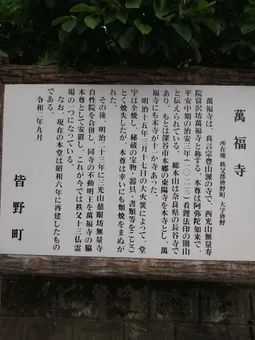 萬福寺
所在地 秩父郡皆野町大字皆野
萬福寺は、真言宗豊山派の寺で、西光山無量寿
院富沢坊萬福寺と称する。本尊は阿弥陀如来で、
平安中期の治安三年(一〇二三)看護法印の開山
と伝えられている。総本山は奈良県の長谷寺で
あり、もとは深谷市本郷の東陽寺を本寺とし、萬
福寺にも末寺が十一か寺あった。
明治十五年三月十七日の大火災によって、堂
宇は全焼し、秘蔵の宝物、器具、書類等をことご
とく焼失したが、本尊は幸いにも類焼をまぬが
れた。
その後、明治二十三年に三光山慈眼坊無量寺
自性院を合併し、同寺の不動明王を萬福寺の脇
本尊として安置し、これが今では秩父十三仏霊
場の一つになっている。
なお、現在の本堂は昭和六年に再建したもの
である。
令和二年九月
皆野町